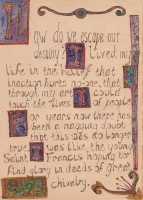 How do we escape our
destiny? I lived my
life in the belief that
inaction hurts no one, that
through my art I could
touch the lives of people
For years now there has
been a nagging doubt
that this was no longer
true. I was like the young
Saint Francis hoping to
find glory in deeds of great
chivalry.